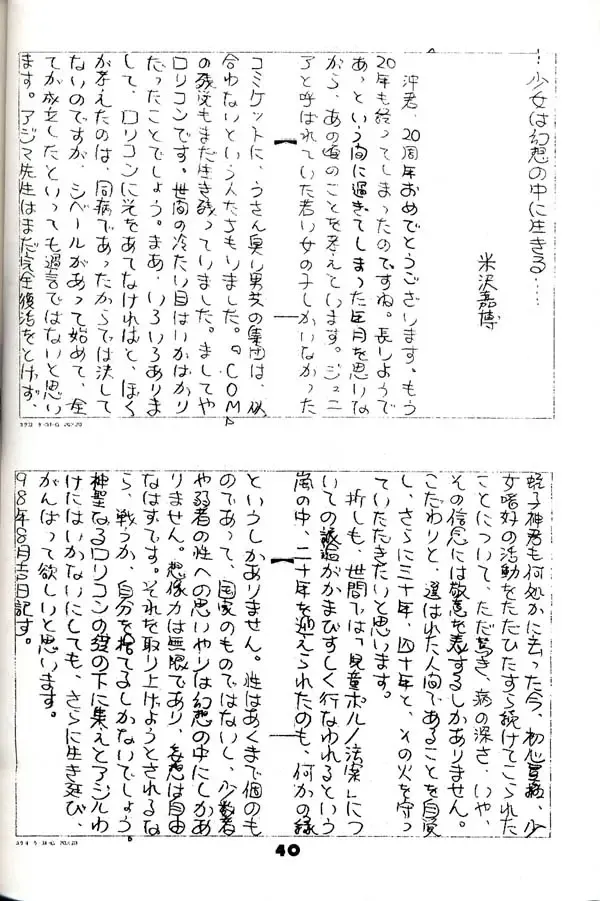 少女は幻想の中に生きる……
米沢嘉博
沖君、20周年おめでとうございます。もう
20年も経ってしまったのですね。長しようで
あっ、という間に過ぎてしまった年月を思いな
がら、あの頃のことを考えています。ジュニ
アと呼ばれていた若い女の子しかいなかった
コミケットに、うさん臭い男共の集団は、似
合わないという人たちもいました。『COM』
の残党もまだ生き残っていました。ましてや
ロリコンです。世間の冷たい目はいかばかり
だったことでしょう。まあ、いろいろありま
して、ロリコンに光をあてなければと、ぼく
が考えたのは、同病であったからでは決して
ないのですが、シベールがあって始めて、全
てが成立したといっても過言ではないと思い
ます。アジマ先生はまだ完全復活をとげず、
コクヨ ケ-31-G 20×20
蛭子神君も何処かに去った今、初心貫徹、少
女嗜好の活動をただひたすら続けてこられた
ことについて、ただ驚き、病の深さ、いや、
その信念には敬意を表するしかありません。
こだわりと、選ばれた人間であることを自覚
し、さらに三十年、四十年と、その火を守っ
ていただきたいと思います。
折しも、世間では「児童ポルノ法案」につ
いての議論がかまびすしく行なわれるという
嵐の中、二十年を迎えられたのも、何かの縁
というしかありません。性はあくまで個のも
のであって、国家のものではないし、少数者
や弱者の性への思いやりは幻想の中にしかあ
りません。想像力は無限であり、妄想は自由
なはずです。それを取り上げようとされるな
ら、戦うか、自分を捨てるしかないでしょう。
神聖なるロリコンの旗の下に集えとアジルわ
けにはいかないにしても、さらに生き延び、
がんばって欲しいと思います。
98年8月吉日記す。
コクヨ ケ-31-G 20×20
40